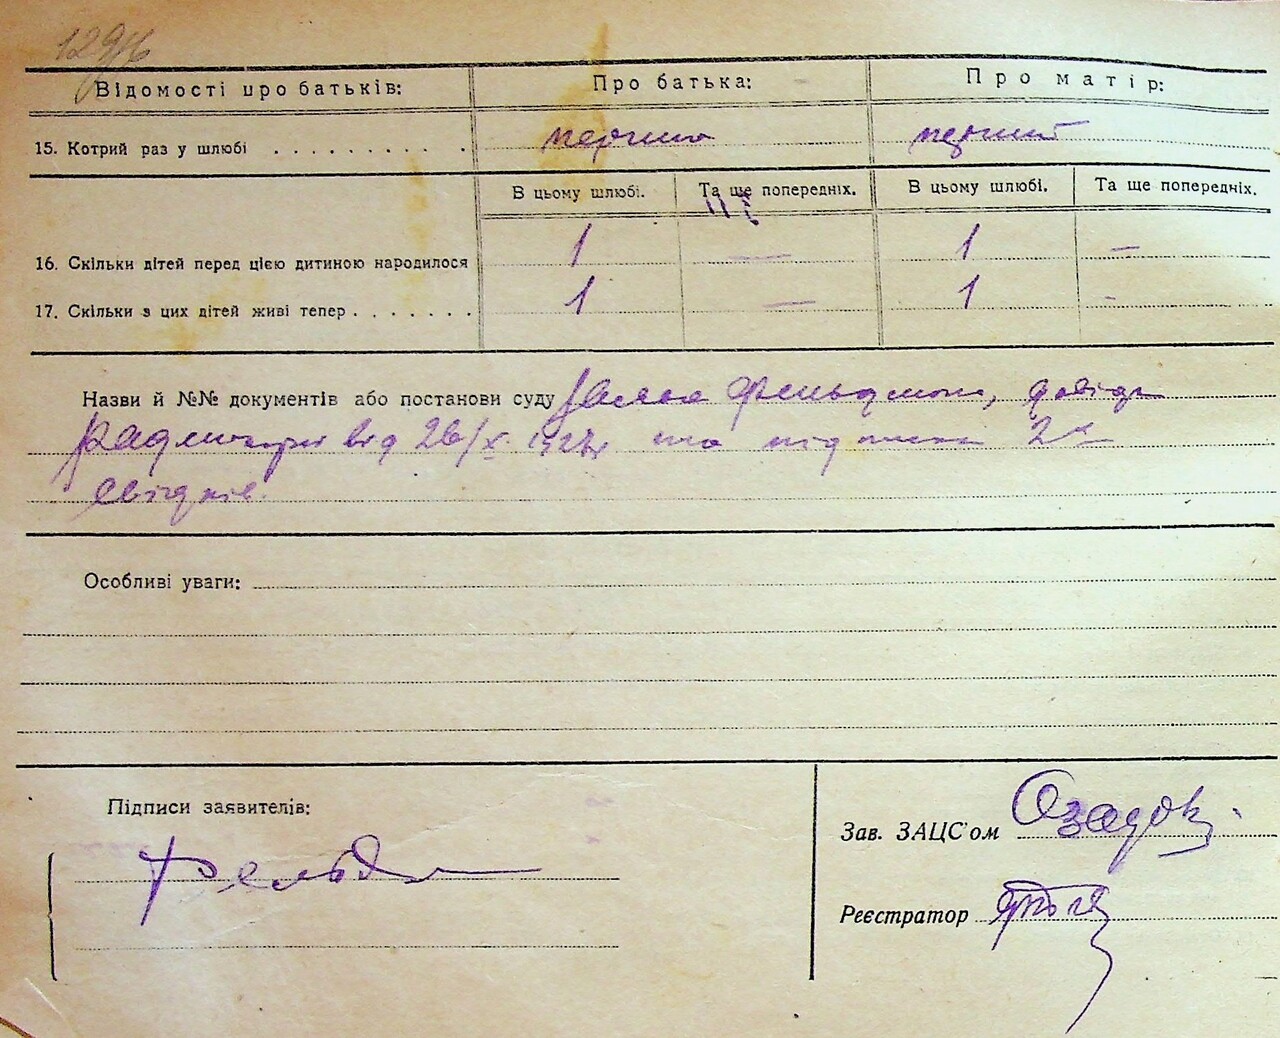 1296
Відомості про батьків: Про батька: Про матір:
15. Котрий раз у шлюбі . . . . . . . . . . перший перший
В цьому шлюбі. Та ще попередніх. В цьому шлюбі. Та ще попередніх.
16. Скільки дітей перед цією дитиною народилося 1 — 1 —
17. Скільки з цих дітей живі тепер . . . . . . . 1 — 1 -
Назви й №№ документів або постанови суду Заява Фельдмана, довідка
від 26/X та підписка 2х
свідків.
Особливі уваги:
Підписи заявителів:
Зав. ЗАЦС'ом
Фельд
Реєстратор